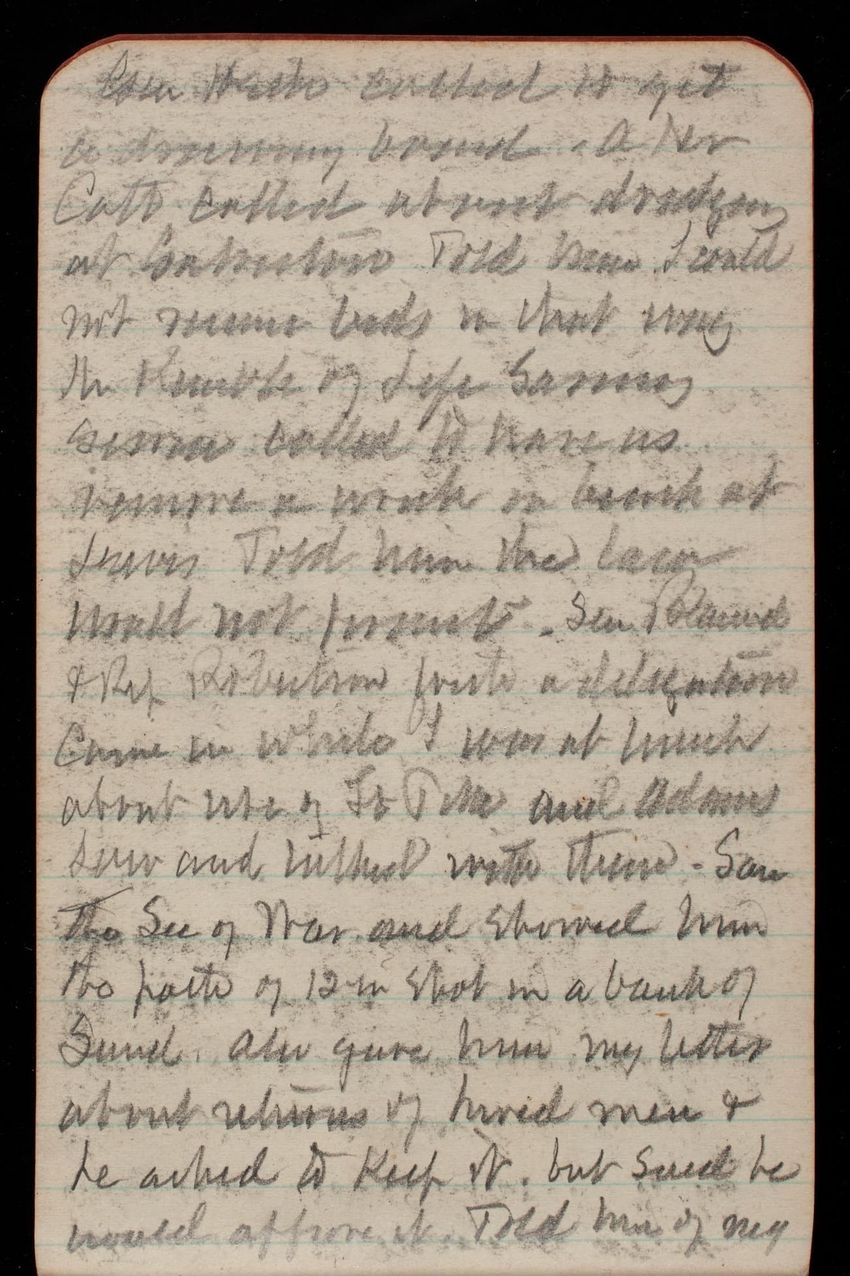 called to get
a drawing board. A Mr
Catt called about dredging
at Galveston Told him I could
not receive bids in that way
Mr Kimball of Life Saving
Service called to have us
remove a wreck on beach at
Lewis Told him the law
would not permit. Sen Blanchard
& Rep Robertson with a delegation
came in while I was at lunch
about use of Ft Pike and Adams
saw and talked with them - Saw
the Sec of War and showed him
the path of 12 in shot in a bank of
Sand. Also gave him my letter
about returns of hired men &
he asked to keep it. but said he
would approve it. Told him of my